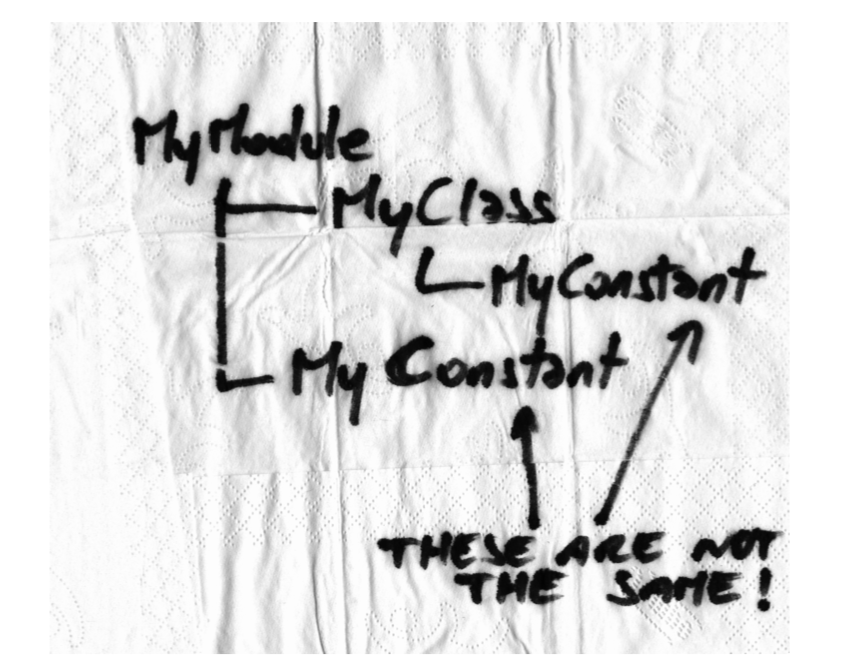 MyModule
MyClass
MyConstant
My Constant
THESE ARE NOT
THE SAME!